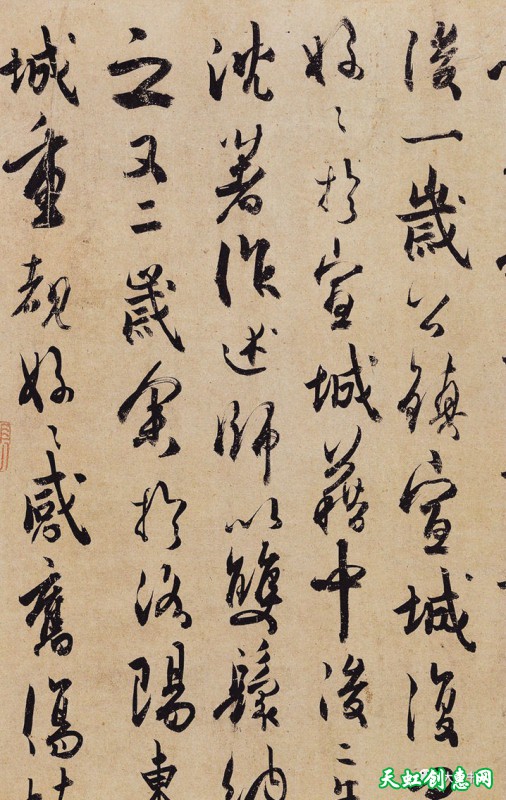 後一歲公鎮宣城復
好〻於宣城藉中後二年
沈著作述師以雙鬟納
之又二歲余於洛陽東
城重覩好〻感舊傷
天虹创惠网